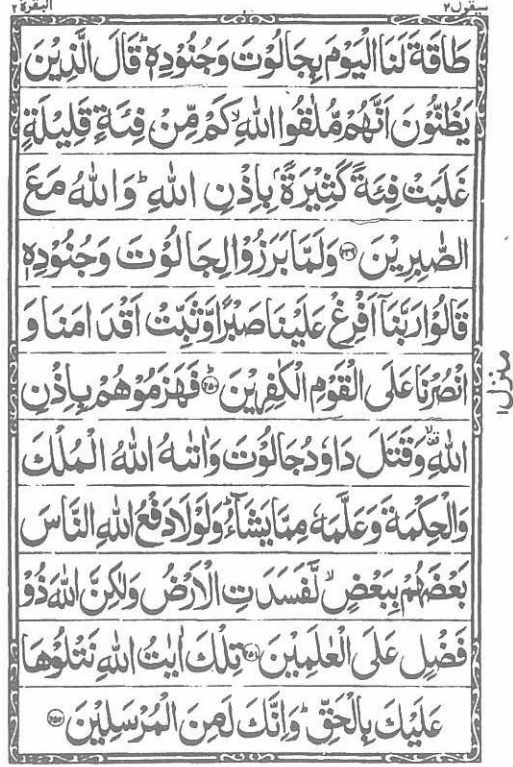 سيقول٢ البقرة٢
طَاقَةَ لَنَا الْيَوْمَ بِجَالُوْتَ وَجُنُوْدِهٖ ؕ قَالَ الَّذِيْنَ
يَظُنُّوْنَ اَنَّهُمْ مُّلٰقُوا اللهِ ۙ كَمْ مِّنْ فِئَةٍ قَلِيْلَةٍ
غَلَبَتْ فِئَةً كَثِيْرَةًۢ بِاِذْنِ اللهِ ؕ وَاللهُ مَعَ
الصّٰبِرِيْنَ ﴿۲۴۹﴾ وَلَمَّا بَرَزُوْا لِجَالُوْتَ وَجُنُوْدِهٖ
قَالُوْا رَبَّنَاۤ اَفْرِغْ عَلَيْنَا صَبْرًا وَّثَبِّتْ اَقْدَامَنَا وَ
انْصُرْنَا عَلَى الْقَوْمِ الْكٰفِرِيْنَ ؕ﴿۲۵۰﴾ فَهَزَمُوْهُمْ بِاِذْنِ
اللهِ ۙ وَقَتَلَ دَاوٗدُ جَالُوْتَ وَاٰتٰىهُ اللهُ الْمُلْكَ
وَالْحِكْمَةَ وَعَلَّمَهٗ مِمَّا يَشَآءُ ؕ وَلَوْلَا دَفْعُ اللهِ النَّاسَ
بَعْضَهُمْ بِبَعْضٍ ۙ لَّفَسَدَتِ الْاَرْضُ وَلٰكِنَّ اللهَ ذُوْ
فَضْلٍ عَلَى الْعٰلَمِيْنَ ﴿۲۵۱﴾ تِلْكَ اٰيٰتُ اللهِ نَتْلُوْهَا
عَلَيْكَ بِالْحَقِّ ؕ وَاِنَّكَ لَمِنَ الْمُرْسَلِيْنَ ﴿۲۵۲﴾
منزل١